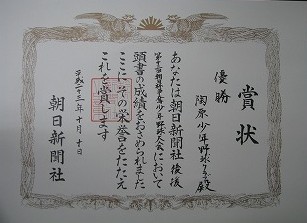 賞状
優勝
陶原少年野球クラブ殿
あなたは朝日新聞社後援
少年野球大会において
頭書の成績をおさめられました
ここにその栄誉をたたえ
これを賞します
平成二十三年十月十日
朝日新聞社